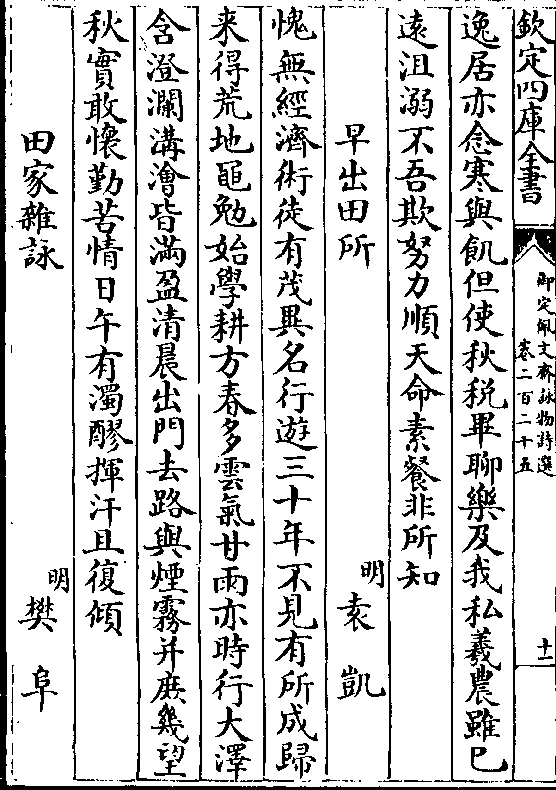 欽定四庫全書
御定佩文齋詠物詩選
卷二百二十五
十一
逸居亦念寒與飢但使秋税畢聊樂及我私羲農雖已
遠沮溺不吾欺努力順天命素餐非所知
早出田所
明
袁凱
愧無經濟術徒有茂異名行遊三十年不見有所成歸
来得荒地黽勉始學耕方春多雲氣甘雨亦時行大澤
含澄瀾溝澮皆滿盈清晨出門去路與煙霧并庶幾望
秋實敢懷勤苦情日午有濁醪揮汗且復傾
田家雜詠
明
樊阜